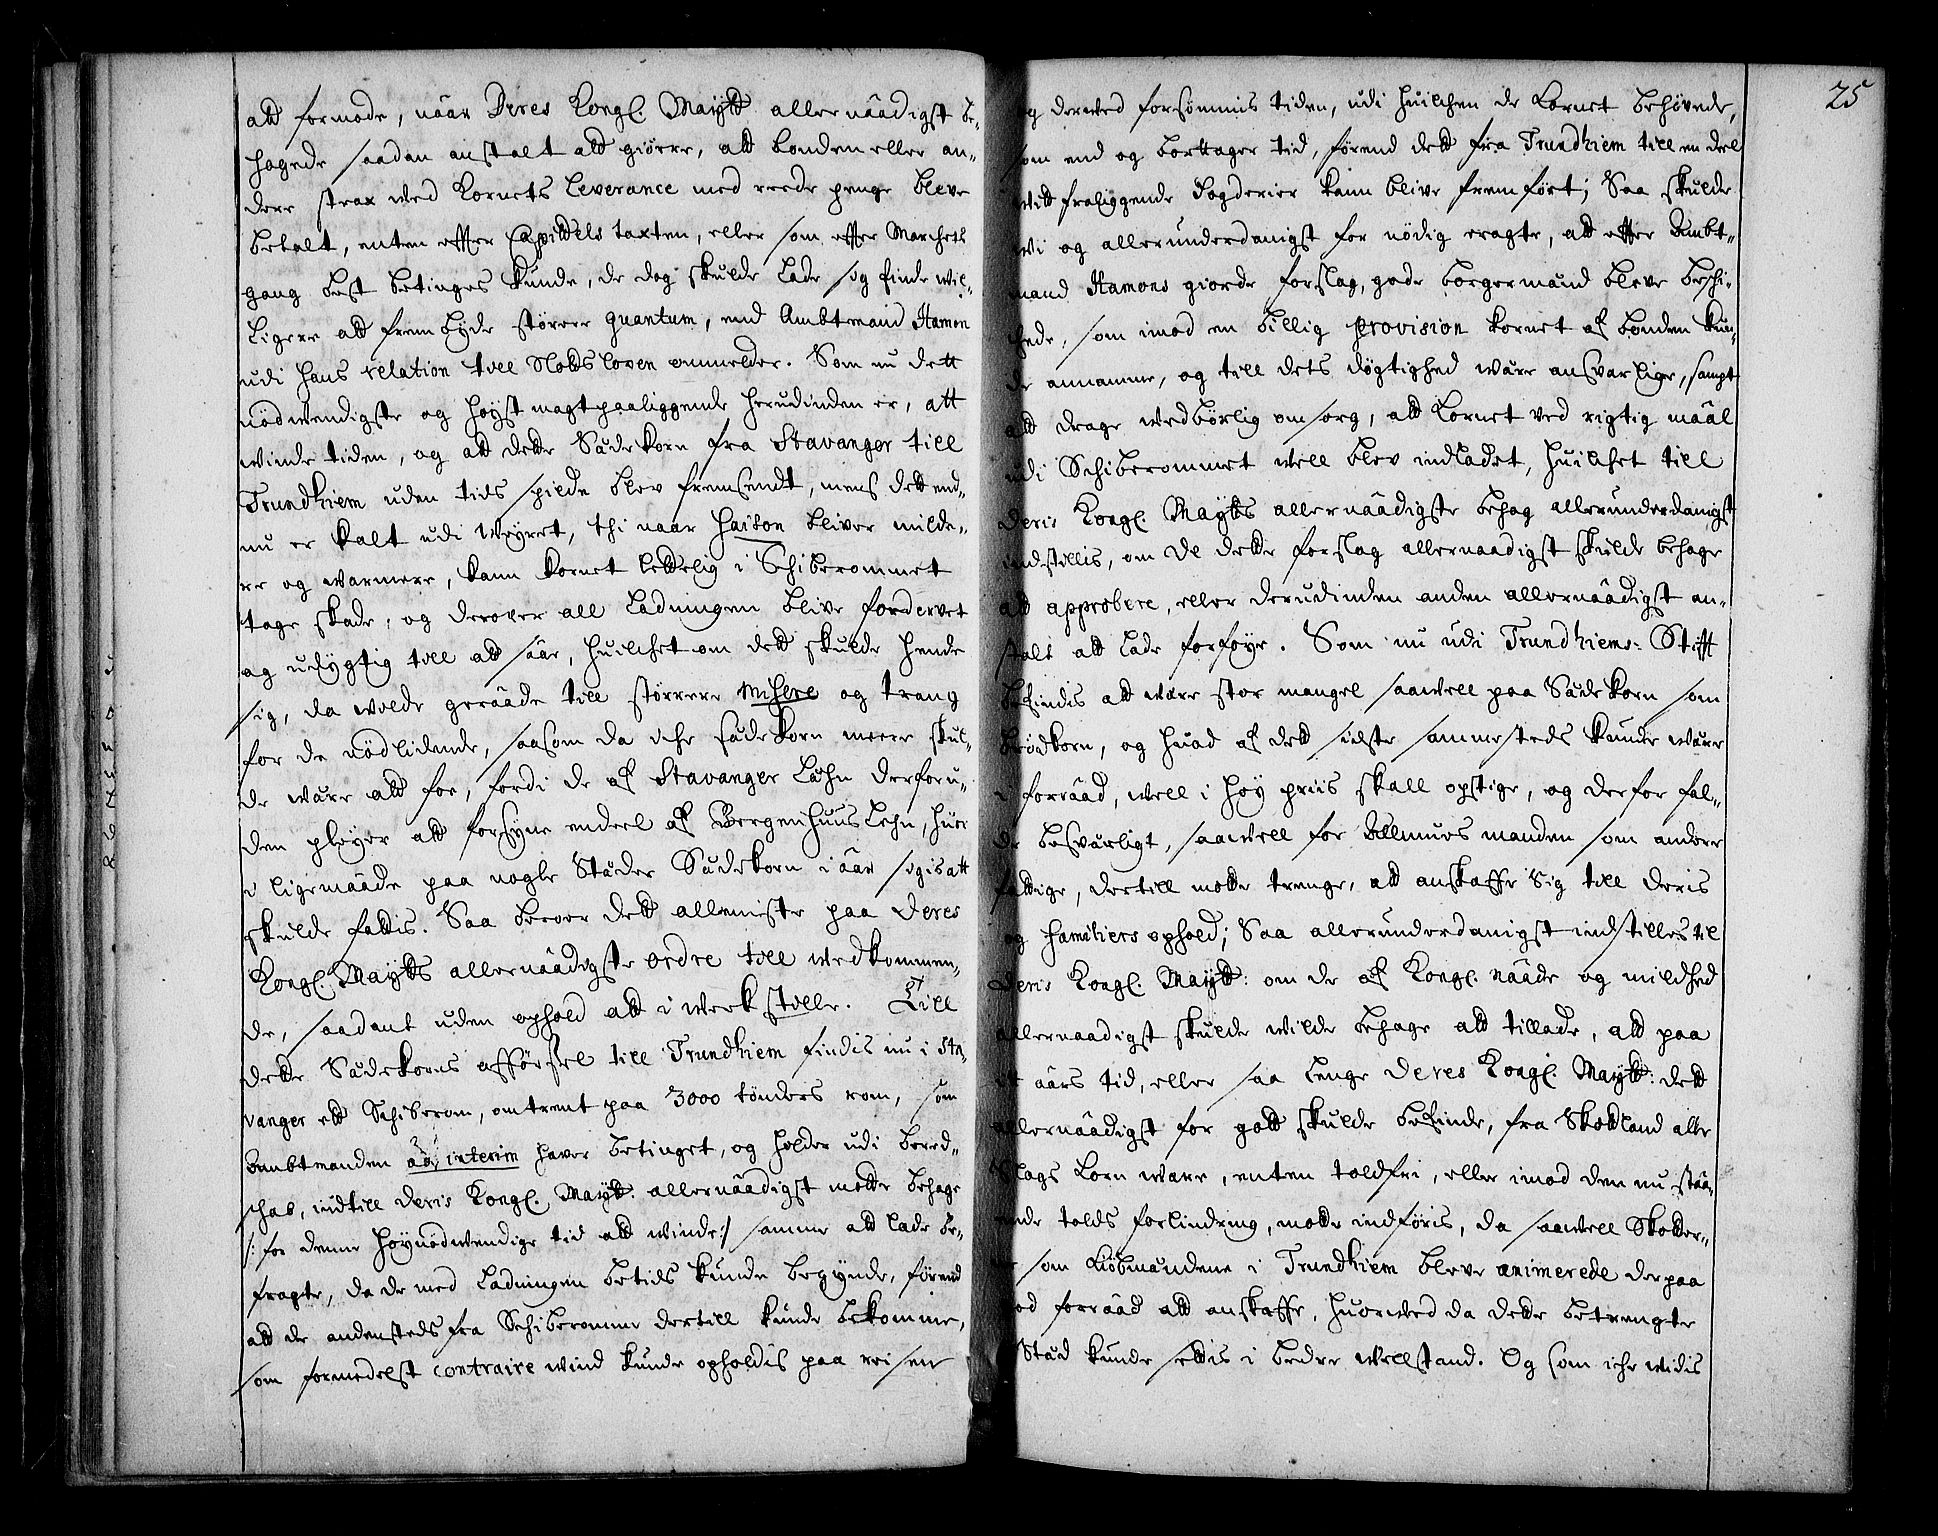 att formode, nåar Deres Kongl. Maytt allernåadigst be-
hagede saadan anstalt att giøre, att bonden eller an-
dere strax wed Kornets leverance med reede penge bleve
betalt, enten effter Capittels taxten, eller som effter Marchets
gang best betinges kunde, de dog skulde lade sig finde wil-
ligere att frembyde større quantum, end Ambtmand Hamon
udi hans relation till Slotzloven ommelder. Som nu dett
nødwendigste og høyst magtpaaliggende herudinden er, att
winde tiden, og att dette Sædekorn fra Stavanger till
Trundhiem uden tids spilde blev fremsendt, mens dett end-
nu er kalt udi weyret, thi naar Saison bliver milde-
re og warmere, kann kornet lettelig i Schiberommet
tage skade, og derover all Ladningen blive fordervet
og udygtig till att sååe, huilchet om dett skulde hende
sig, da wolde gerååde till større misere og trang
for de nødlidende, saasom da iche sædekorn meere skul-
de være att foe, fordi de af Stavanger Læhn derforu-
den pleyer att forsyne endeel af Bergenhuus Lehn, huor
i ligemååde paa nogle Stæder Sædekorn i åår sigis att
skulde fattis. Saa beroer dett allemeste paa Deres
Kongl. Maytts allernåadigste ordre till wedkommen-
de, saadant uden ophold att i werk stille. Till
dette Sædekorns afførsel till Trundhiem findis nu i Sta-
vanger ett Schiberom, omtrent paa 3000 tønders rom, som
Ambtmanden ad interim haver betinget, og holder udi bered-
schab, indtill Deris Kongl. Maytt. allernåadigst motte behage
/: for denne høynødwendige tid att winde :/ samme att lade be-
fragte, da de med Ladningen betids kunde begynde, førend
att de andensteds fra Schiberomme dertill kunde bekomme,
som formedelst contraire wind kunde opholdis paa reisen
25
og derwed forsømmis tiden, udi huilchen de Kornet behøvede,
som end og borttager tid, førend dett fra Trundhiem till en deel
witt fraliggende Fogderier kann blive fremført; Saa skulde
wi og allerunderdanigst for nødig eragte, att effter Ambt-
mand Hamons giorde forslag, gode borgermænd bleve beschi-
chede, som imod en billig provision kornet af bonden kun-
de annamme, og till dets døgtighed være answarlige, sampt
att drage wedbørlig omsorg, att Kornet ved rigtig måål
udi Schiberommet well blev indladet, huilchet till
Deris Kongl. Maytts allernåadigste behag allerunderdanigst
indstillis, om De dette forslag allernaadigst skulde behage
att approbere, eller derudinden anden allernåadigst an-
stalt att lade forføye. Som nu udi Trundhiems: Stifft
befindis att være stor mangel saawell paa Sædekorn som
brødkorn, og huad af dett sidste sammesteds kunde være
i forrååd, well i høy priis skall opstige, og derfor fal-
de besværligt, saawell for Allmues manden som andere
fattige, dertill motte trenge, att anskaffe Sig till Deris
og Familiers ophold; Saa allerunderdanigst indstilles til
Deris Kongl. Maytt: om de af Kongl. nååde og mildhed
allernaadigst skulde wilde behage att tillade, att paa
it åårs tid, eller saa lenge Deres Kongl. Maytt: dett
allernåadigst for gott skulde befinde, fra Skottland alle
Slags Korn ware, enten toldfri, eller imod den nu ståå-
ende tolds forlindring, motte indføris, da saawell Skotter-
ne som Kiøbmændene i Trundhiem bleve animerede derpaa
god forrååd att anskaffe, huorwed da dette betrengte
Stæd kunde settis i bedre wellstand. Og som iche widis